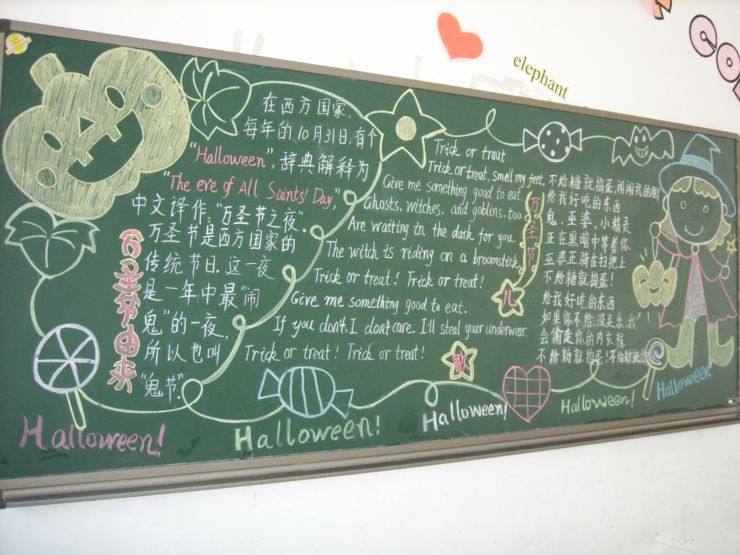 elephant
CO
在西方国家,
每年的10月31日,有个
"Halloween",辞典解释为
"The eve of All Saints' Day",
中文译作:"万圣节之夜".
万圣节是西方国家的
传统节日.这一夜
是一年中最"闹
鬼"的一夜,
所以也叫
"鬼节".
万圣节由来
Trick or treat
Trick or treat, smell my feet.
Give me something good to eat.
Ghosts, witches, and goblins, too.
Are waiting in the dark for you.
The witch is riding on a broomstick
Trick or treat! Trick or treat!
Give me something good to eat.
If you don't, I don't care. I'll steal your underwear.
Trick or treat! Trick or treat!
万圣节
儿
歌
不给糖就捣蛋,闻闻我的脚
给我好吃的东西
鬼,巫婆,小精灵
正在黑暗中等着你
巫婆正骑在扫把上
不给糖就捣蛋!
给我好吃的东西
如果你不给,没关系,我
会偷走你的内衣裤
不给糖就捣蛋!不给糖就
Halloween!
Halloween!
Halloween!
Halloween!
Halloween